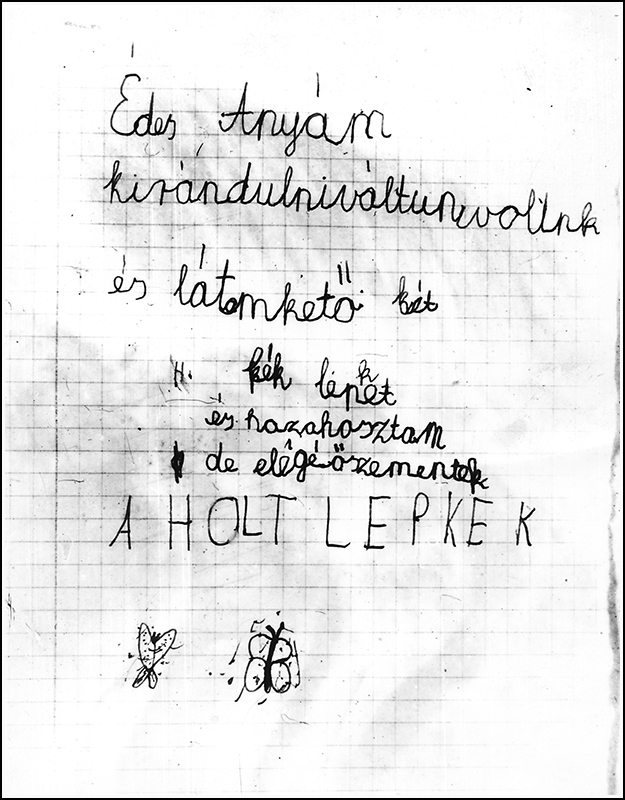 Édes Anyám
kirándulniváltunkvoltnk
és látomkető két
H. kék lepket
és hazahosztam
de elégéőszementek
A HOLT LEPKEK